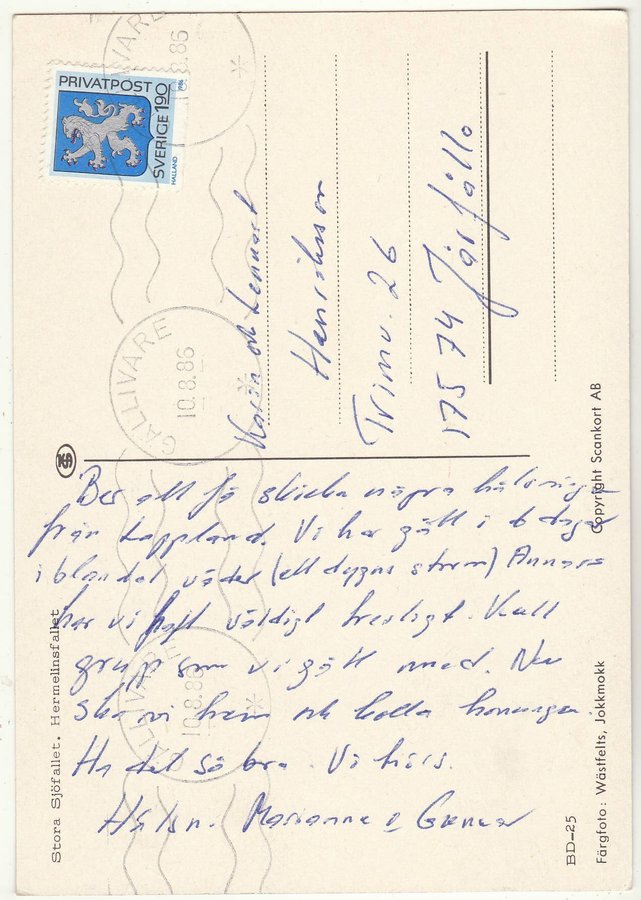 PRIVATPOST
SVERIGE 190
HALLAND
1986
GÄLLIVARE
10.8.86
GÄLLIVARE
10.8.86
GÄLLIVARE
10.8.86
Karin och Lennart
Henriksson
Trimv. 26
175 74 Järfälla
Ber att få skicka några hälsningar
från Lappland. Vi har gått i 6 dagar
i blandat väder (ett dygns storm) Annars
har vi haft väldigt trevligt. Kull
grupp som vi gått med. Nu
ska vi hem och kolla honungen.
Ha det så bra. Vi hörs.
Hälsn. Marianne o Gunnar
Stora Sjöfallet. Hermelinsfallet
BD-25
Färgfoto: Wästfelts, Jokkmokk
Copyright Scankort AB